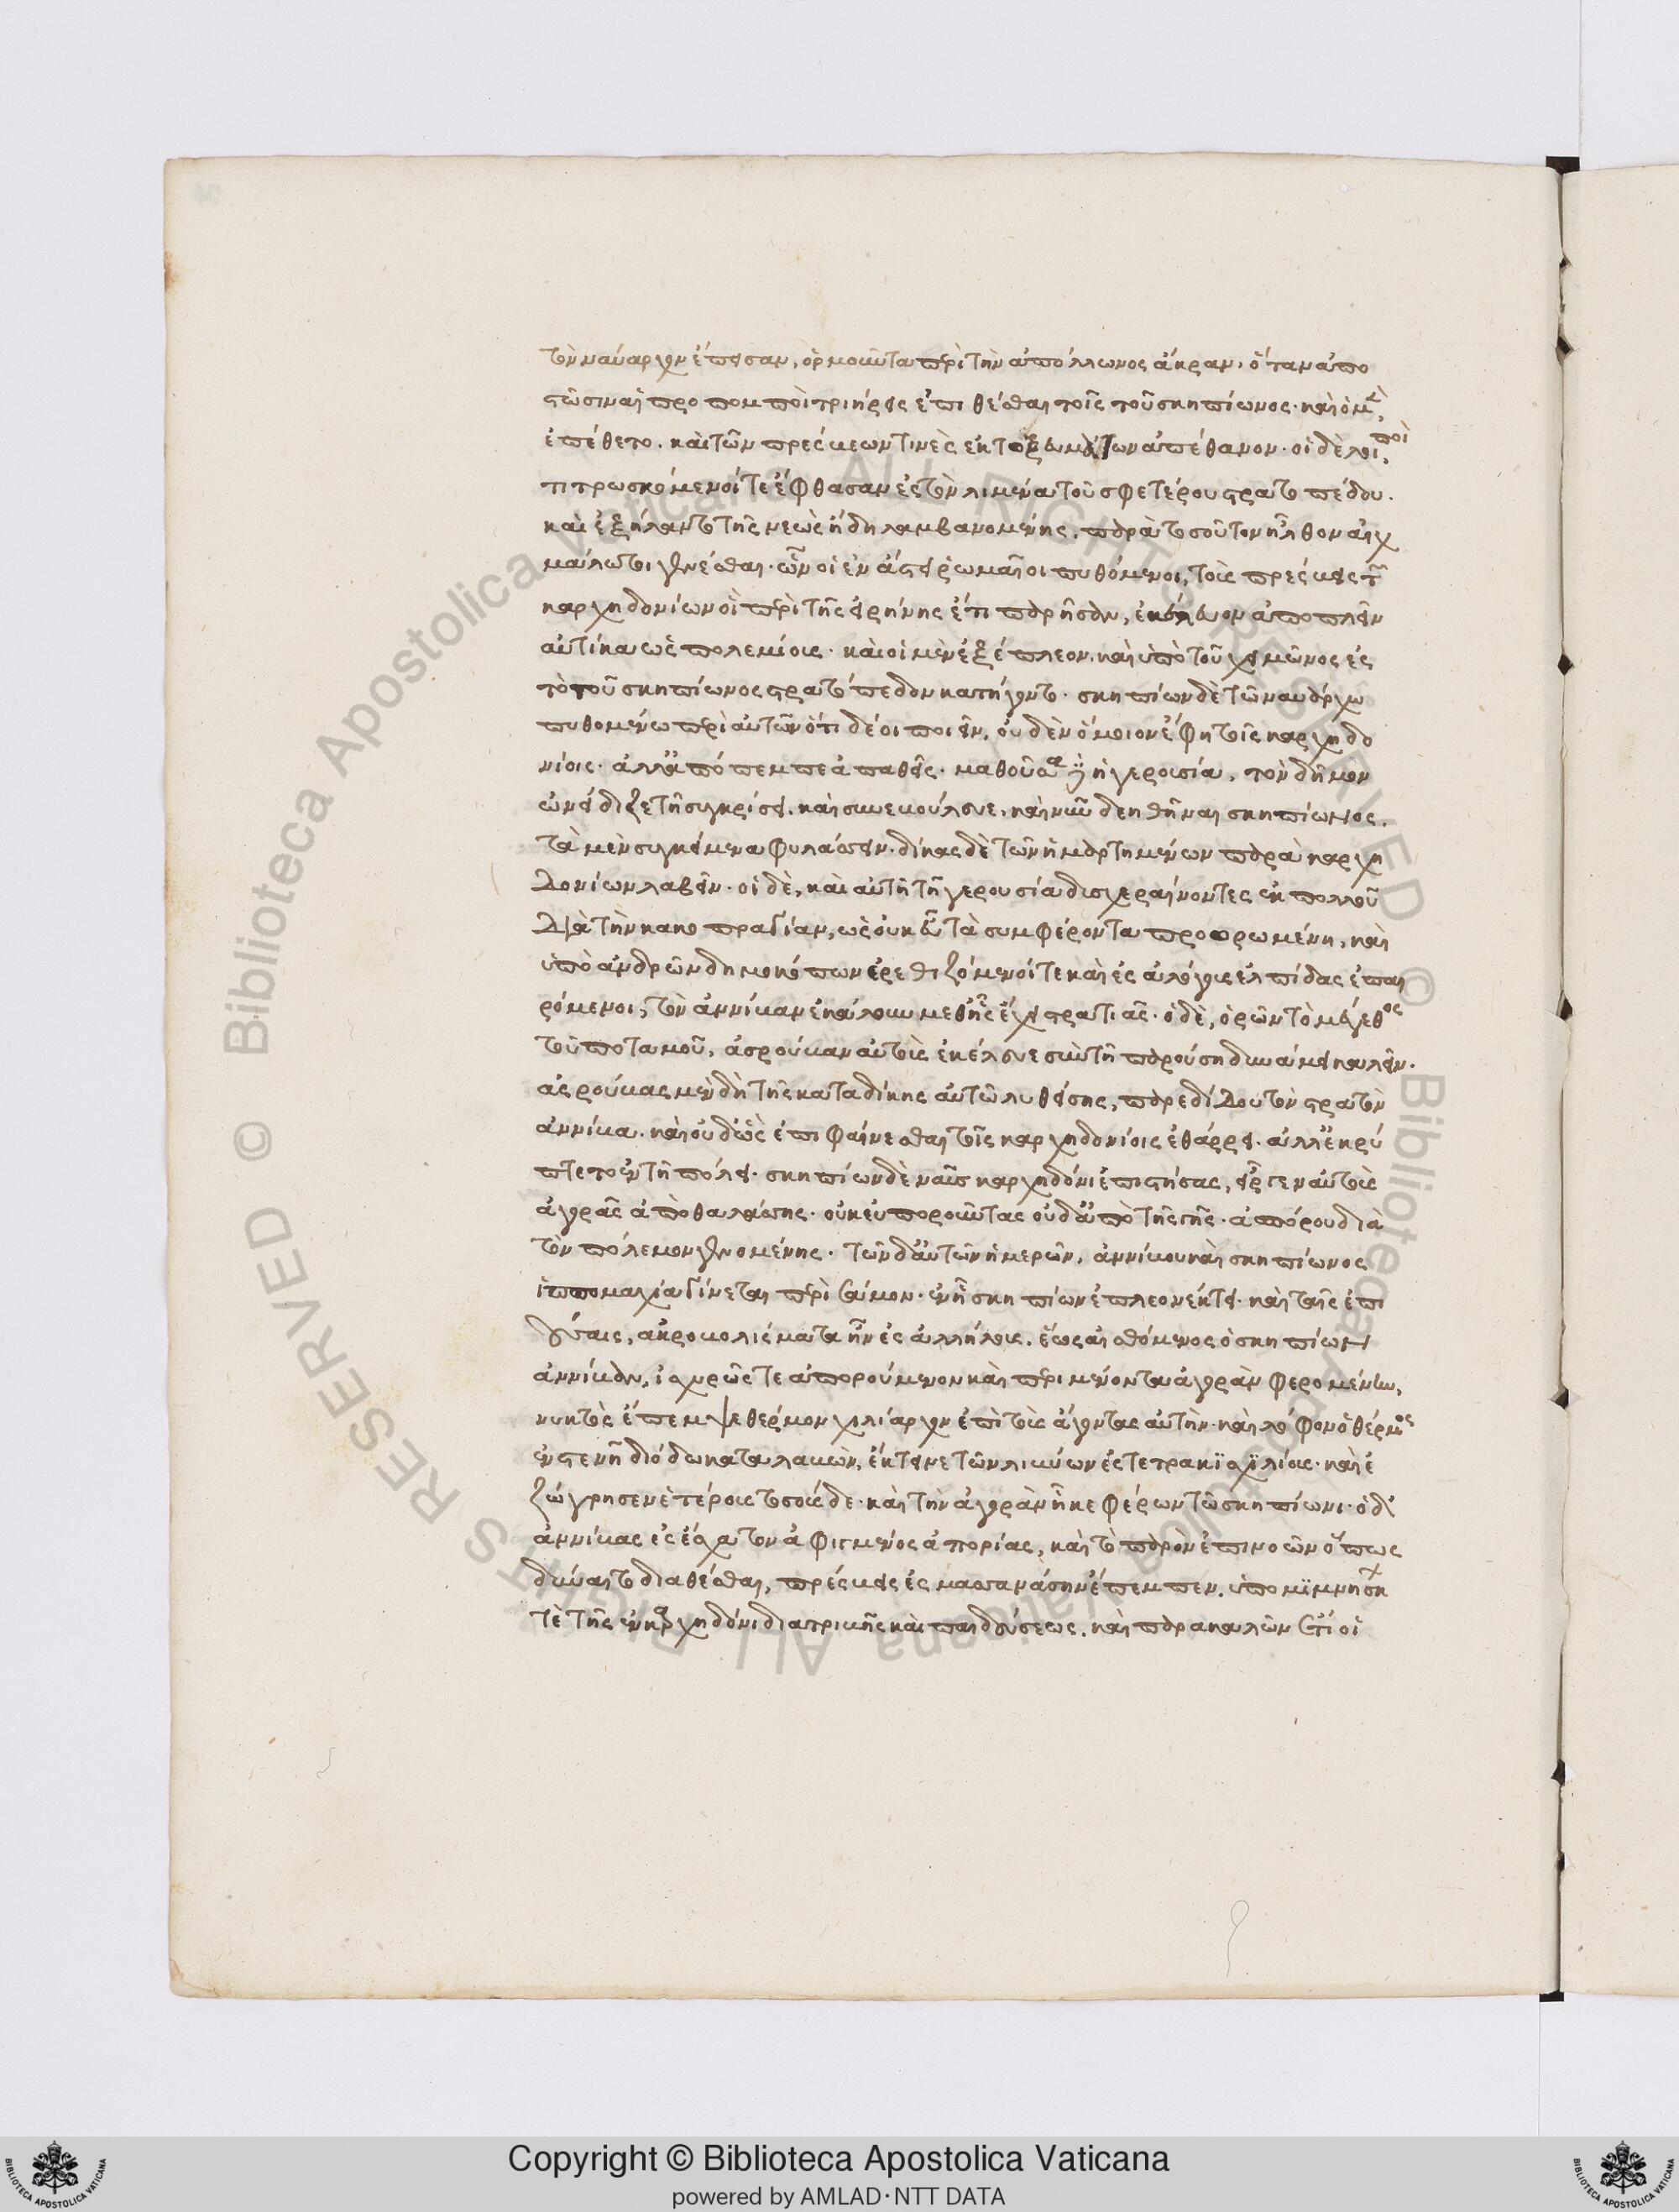 τὸν ναύαρχον ἔπεισαν, ὁρμοῦντα περὶ τὴν ἀπόλλωνος ἄκραν, ὅταν ἀπο
στῶσιν αἱ προπομποὶ τριήρεις ἐπιθέσθαι τοῖς τοῦ σκηπίωνος. καὶ ὁ μὲν
ἐπέθετο. καὶ τῶν πρέσβεων τινὲς ἐκ τοξευμάτων ἀπέθανον. οἱ δὲ λοιποὶ
τιτρωσκόμενοί τε ἔφθασαν ἐς τὸν λιμένα τοῦ σφετέρου στρατοπέδου.
καὶ ἐξήλαντο τῆς νεὼς ἤδη λαμβανομένης. παρὰ τοσοῦτον ἦλθον αἰχ
μάλωτοι γενέσθαι. ὧν οἱ ἐν ἄστει ῥωμαῖοι πυθόμενοι, τοὺς πρέσβεις τῶν
καρχηδονίων οἳ περὶ τῆς εἰρήνης ἔτι παρῆσαν, ἐκέλευον ἀποπλεῖν
αὐτίκα ὡς πολεμίους. καὶ οἱ μὲν ἐξέπλεον. καὶ ὑπὸ τοῦ χειμῶνος ἐς
τὸ τοῦ σκηπίωνος στρατόπεδον κατήγοντο. σκηπίων δὲ τῷ ναυάρχω
πυθομένω περὶ αὐτῶν ὅτι δέοι ποιεῖν, οὐδὲν ὅμοιον ἔφη τοῖς καρχηδο
νίοις. ἀλλ' ἀπόπεμπε ἀπαθεῖς. μαθοῦσα δ' ἡ γερουσία, τὸν δῆμον
ὠνείδιζε τῇ συγκρίσει. καὶ συνεβούλευε, καὶ νῦν δεηθῆναι σκηπίωνος.
τὰ μὲν συγκείμενα φυλάσσειν. δίκας δὲ τῶν ἡμαρτημένων παρὰ καρχη
δονίων λαβεῖν. οἱ δὲ, καὶ αὐτῇ τῇ γερουσία δυσχεραίνοντες ἐκ πολλοῦ
διὰ τὴν κακοπραγίαν, ὡς οὐκ εὖ τὰ συμφέροντα προορωμένη, καὶ
ὑπὸ ἀνδρῶν δημοκόπων ἐρεθιζόμενοί τε καὶ ἐς ἀλόγους ἐλπίδας ἐπαι
ρόμενοι, τὸν ἀννίβαν ἐκάλουν μεθ' ἧς ἔχει στρατιᾶς. ὁ δὲ, ὁρῶν τὸ μέγεθος
τοῦ πολέμου, ἀσρούβαν αὐτοὺς ἐκέλευε σὺν τῇ παρούση δυνάμει καλεῖν.
ἀσρούβας μὲν δὴ τῆς καταδίκης αὐτῷ λυθείσης, παρεδίδου τὸν στρατὸν
ἀννίβα. καὶ οὐδ' ὣς ἐπιφαίνεσθαι τοῖς καρχηδονίοις ἐθάρρει. ἀλλ' ἐκρύ
πτετο ἐν τῇ πόλει. σκηπίων δὲ ναῦς καρχηδόνι ἐπιστήσας, εἶργεν αὐτοὺς
ἀγορᾶς ἀπὸ θαλάσσης. οὐκ εὐποροῦντας οὐδ' ἀπὸ τῆς γῆς. ἀσπόρου διὰ
τὸν πόλεμον γενομένης. τῶν δ' αὐτῶν ἡμερῶν, ἀννίβου καὶ σκηπίωνος
ἱππομαχία γίνεται περὶ ζάμαν. ἐν ᾗ σκηπίων ἐπλεονέκτει. καὶ ταῖς ἐπι
γύαις, ἀκροβολίσματα ἦν ἐς ἀλλήλους. ἕως αἰσθόμενος ὁ σκηπίων
ἀννίβαν, ἰσχυρῶς τε ἀπορούμενον καὶ περιμένοντα ἀγορὰν φερομένην,
νυκτὸς ἔπεμψε θέρμον χιλίαρχον ἐπὶ τοὺς ἄγοντας αὐτήν. καὶ λόφον ὁ θέρμος
ἐν στενῇ διόδω καταλαβὼν, ἔκτεινε τῶν λιβύων ἐς τετρακισχιλίους. καὶ ἐ
ζώγρησεν ἑτέρους τοσούσδε. καὶ τὴν ἀγορὰν ἧκε φέρων τῷ σκηπίωνι. ὁ δ'
ἀννίβας ἐς ἔσχατον ἀφιγμένος ἀπορίας, καὶ τὸ παρὸν ἐπινοῶν ὅπως
δύναιτο διαθέσθαι, πρέσβεις ἐς μασσανάσσην ἔπεμπεν. ὑπομιμνήσκων
τὲ τῆς ἐν καρχηδόνι διατριβῆς καὶ παιδεύσεως. καὶ παρακαλῶν ἔτι οἱ